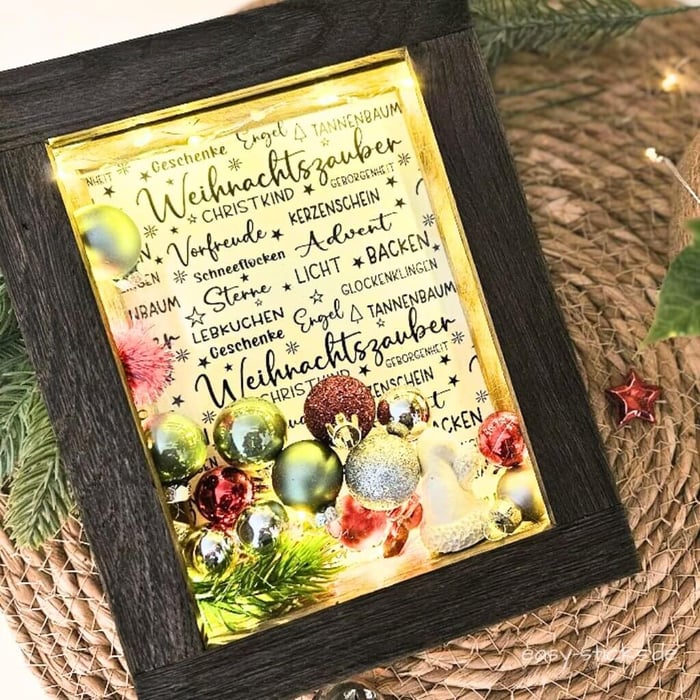 NHEIT Geschenke Engel TANNENBAUM
Weihnachtszauber
CHRISTKIND GEBORGENHEIT
Vorfreude KERZENSCHEIN
Schneeflocken Advent
LICHT BACKEN
Sterne GLOCKENKLINGEN
NBAUM LEBKUCHEN Engel TANNENBAUM
Geschenke
Weihnachtszauber
CHRISTKIND GEBORGENHEIT
ZENSCHEIN
BACKEN
easy-sticks.de